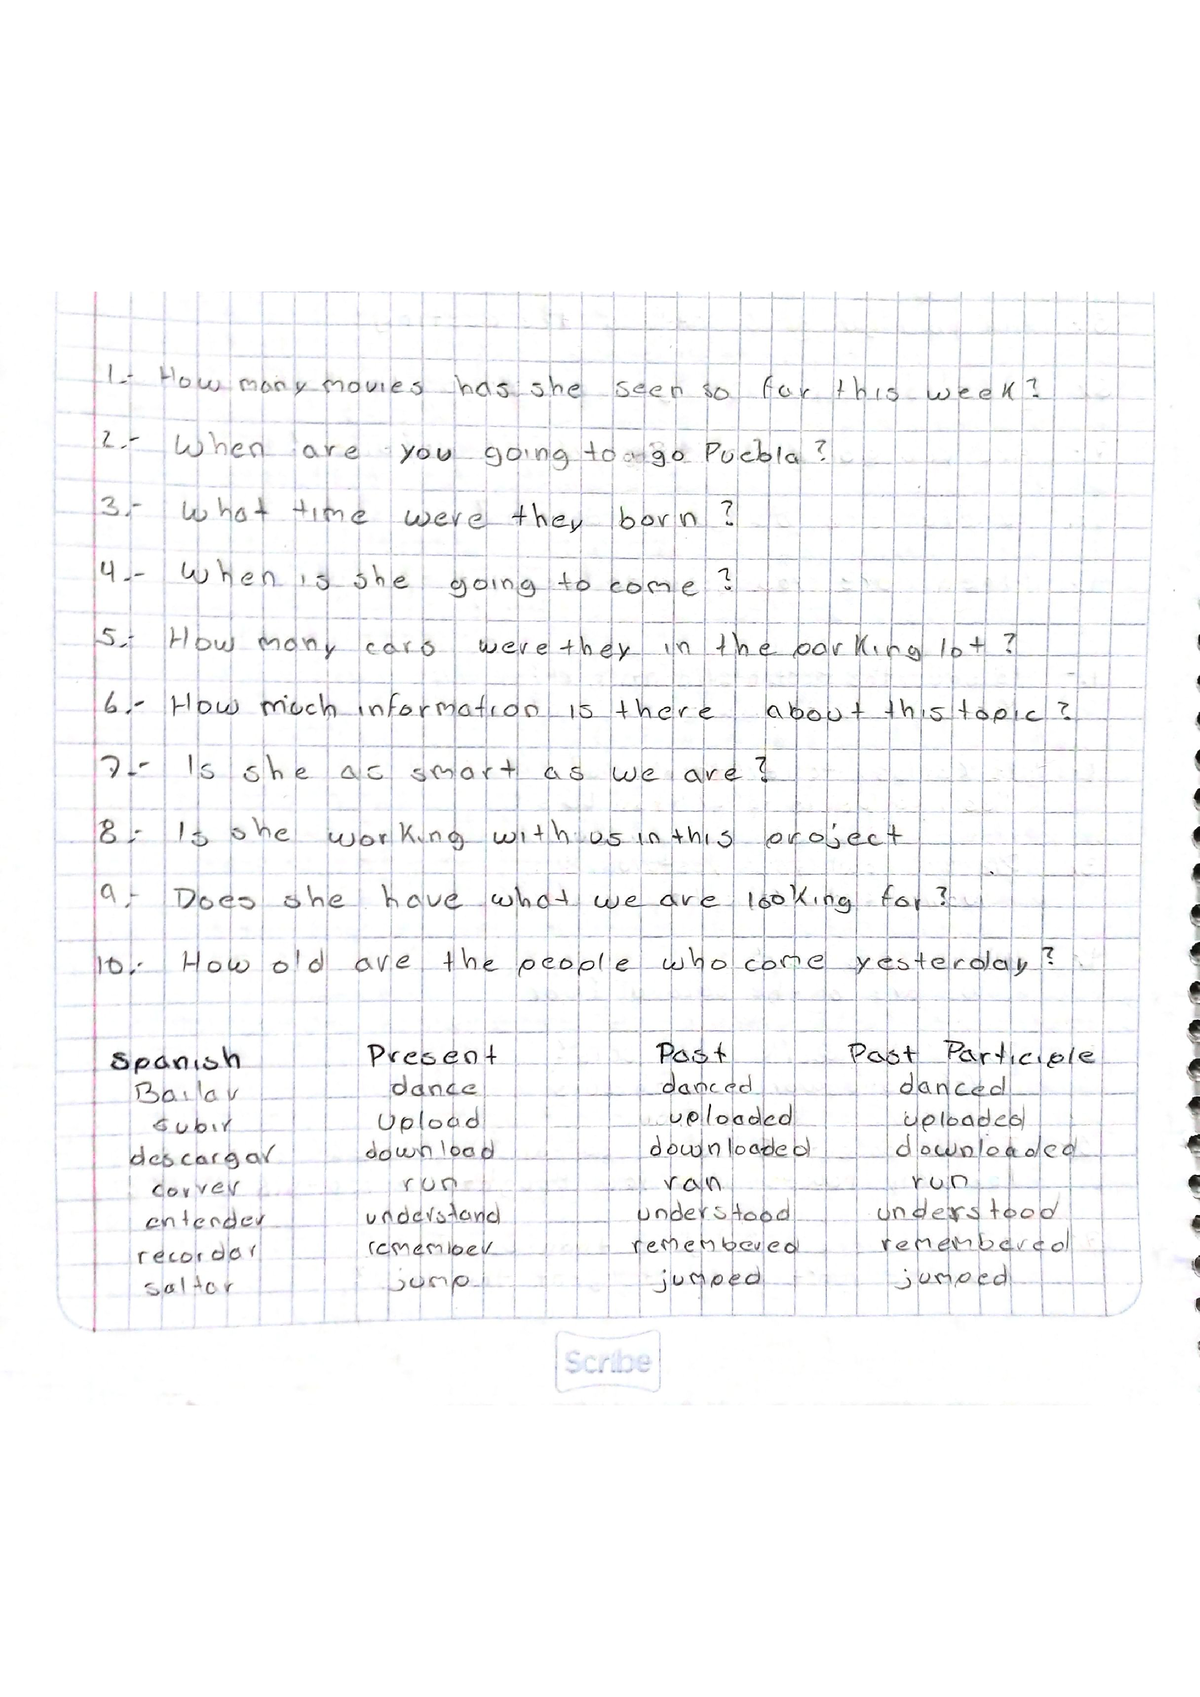 1.- How many movies has she seen so far this week?
2.- When are you going to go Puebla?
3.- What time were they born?
4.- When is she going to come?
5.- How many cars were they in the parking lot?
6.- How much information is there about this topic?
7.- Is she as smart as we are?
8.- Is she working with us in this project
9.- Does she have what we are looking for?
10.- How old are the people who come yesterday?
Spanish Present Past Past Participle
Bailar dance danced danced
Subir Upload uploaded uploaded
descargar download downloaded downloaded
correr run ran run
entender understand understood understood
recordar remember remembered remembered
saltar jump jumped jumped
Scribe